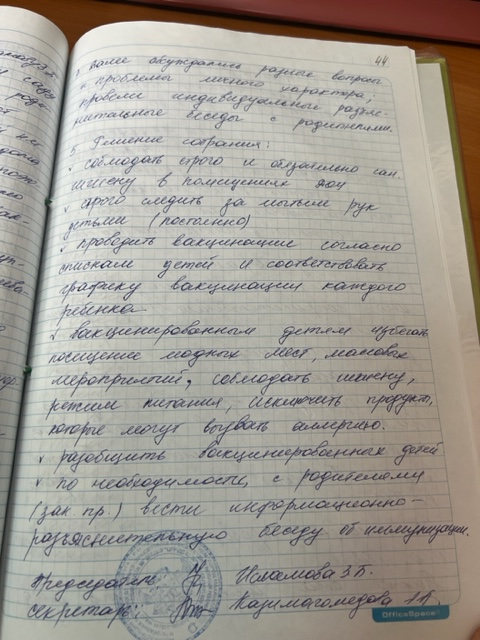 44
✓ Далее обсуждались разные вопросы
и проблемы личного характера,
провели индивидуальные разъяс-
нительные беседы с родителями.
5. Решение собрания:
✓ соблюдать строго и обязательно сан.
гигиену в помещениях ДОУ
✓ строго следить за мытьем рук
детьми (постоянно)
✓ проводить вакцинацию согласно
спискам детей и соответствовать
графику вакцинации каждого
ребенка
✓ вакцинированным детям избегать
посещение людных мест, массовых
мероприятий, соблюдать гигиену,
режим питания, исключить продукты,
которые могут вызвать аллергию.
✓ разобщить вакцинированных детей
✓ по необходимости, с родителями
(зак. пр.) вести информационно-
разъяснительную беседу об иммунизации.
Председатель Имамова З.Б.
Секретарь: Казимагомедова
OfficeSpace